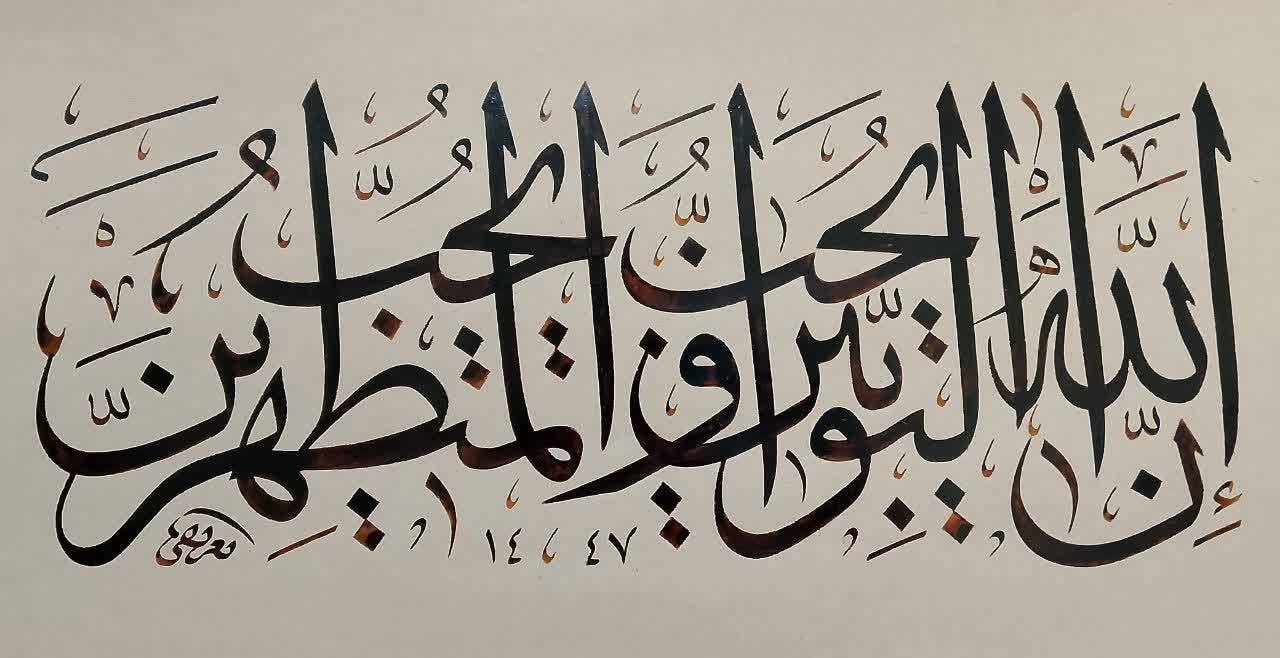 إِنَّ اللَّهَ يُحِبُّ التَّوَّابِينَ وَيُحِبُّ الْمُتَطَهِّرِينَ
١٤٤٧